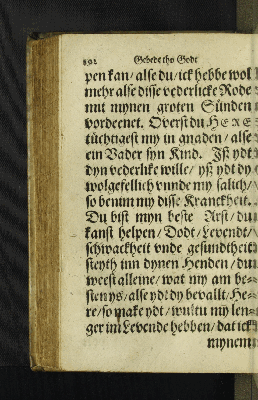 192 Gebedt tho Godt
pen kan / alse du / ick hebbe wol
mehr alse disse vederlicke Rode
mit mynen groten Sünden
vordeenet. Overst du HERE
tüchtigest my in gnaden / alse
ein Vader syn Kind. Jsst ydt
dyn vederlike wille / ysß ydt dy
wolgefellich vnnde my salich /
so benim my disse Kranckheit.
Du bist myn beste Arst / du
kanst helpen / Dodt / Levendt /
schwackheit vnde gesundtheit
steyth inn dynen Henden / du
weest alleine / wat my am be-
sten ys / alse ydt dy bevallt / He-
re / so make ydt / wultu my len-
ger im Levende hebben / dat ick
mynem